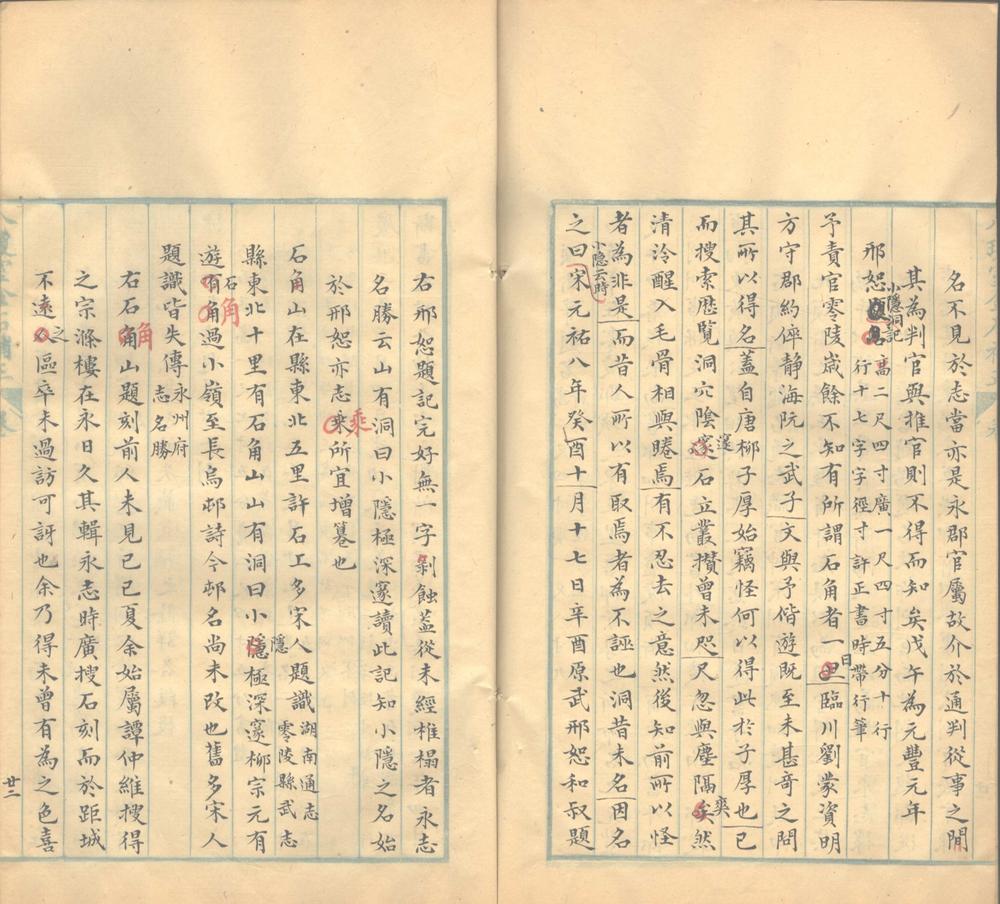 名不見於志當亦是永郡官屬故介於通判從事之間
其為判官與推官則不得而知矣戊午為元豐元年
邢恕題名小隱洞記高二尺四寸廣一尺四寸五分十行
行十七字字徑寸許正書時帶行筆
予責官零陵歲餘不知有所謂石角者一里日臨川劉蒙資明
方守郡約倅靜海阮之武子文與予偕遊既至未甚奇之問
其所以得名蓋自唐柳子厚始竊怪何以得此於子厚也已
而搜索歷覽洞穴陰邃邃石立叢攢曾未咫尺忽與塵隔矣爽然
清泠醒入毛骨相與睠焉有不忍去之意然後知前所以怪
者為非是而昔人所以有取焉者為不誣也洞昔未名因名
之曰小隱云時宋元祐八年癸酉十月十七日辛酉原武邢恕和叔題
右邢恕題記完好無一字剝蝕蓋從未經椎搨者永志
名勝云山有洞曰小隱極深邃讀此記知小隱之名始
於邢恕亦志乘乘所宜增纂也
石角山在縣東北五里許石工多宋人題識湖南通志
零陵縣武志
縣東北十里有石角山山有洞曰小隱隱極深邃柳宗元有
遊有石角角過小嶺至長烏邨詩今邨名尚未改也舊多宋人
題識皆失傳永州府
志名勝
右石角角山題刻前人未見已已夏余始屬譚仲維搜得
之宗滌樓在永日久其輯永志時廣搜石刻而於距城
不遠之區卒未過訪可訝也余乃得未曾有為之色喜
廿二